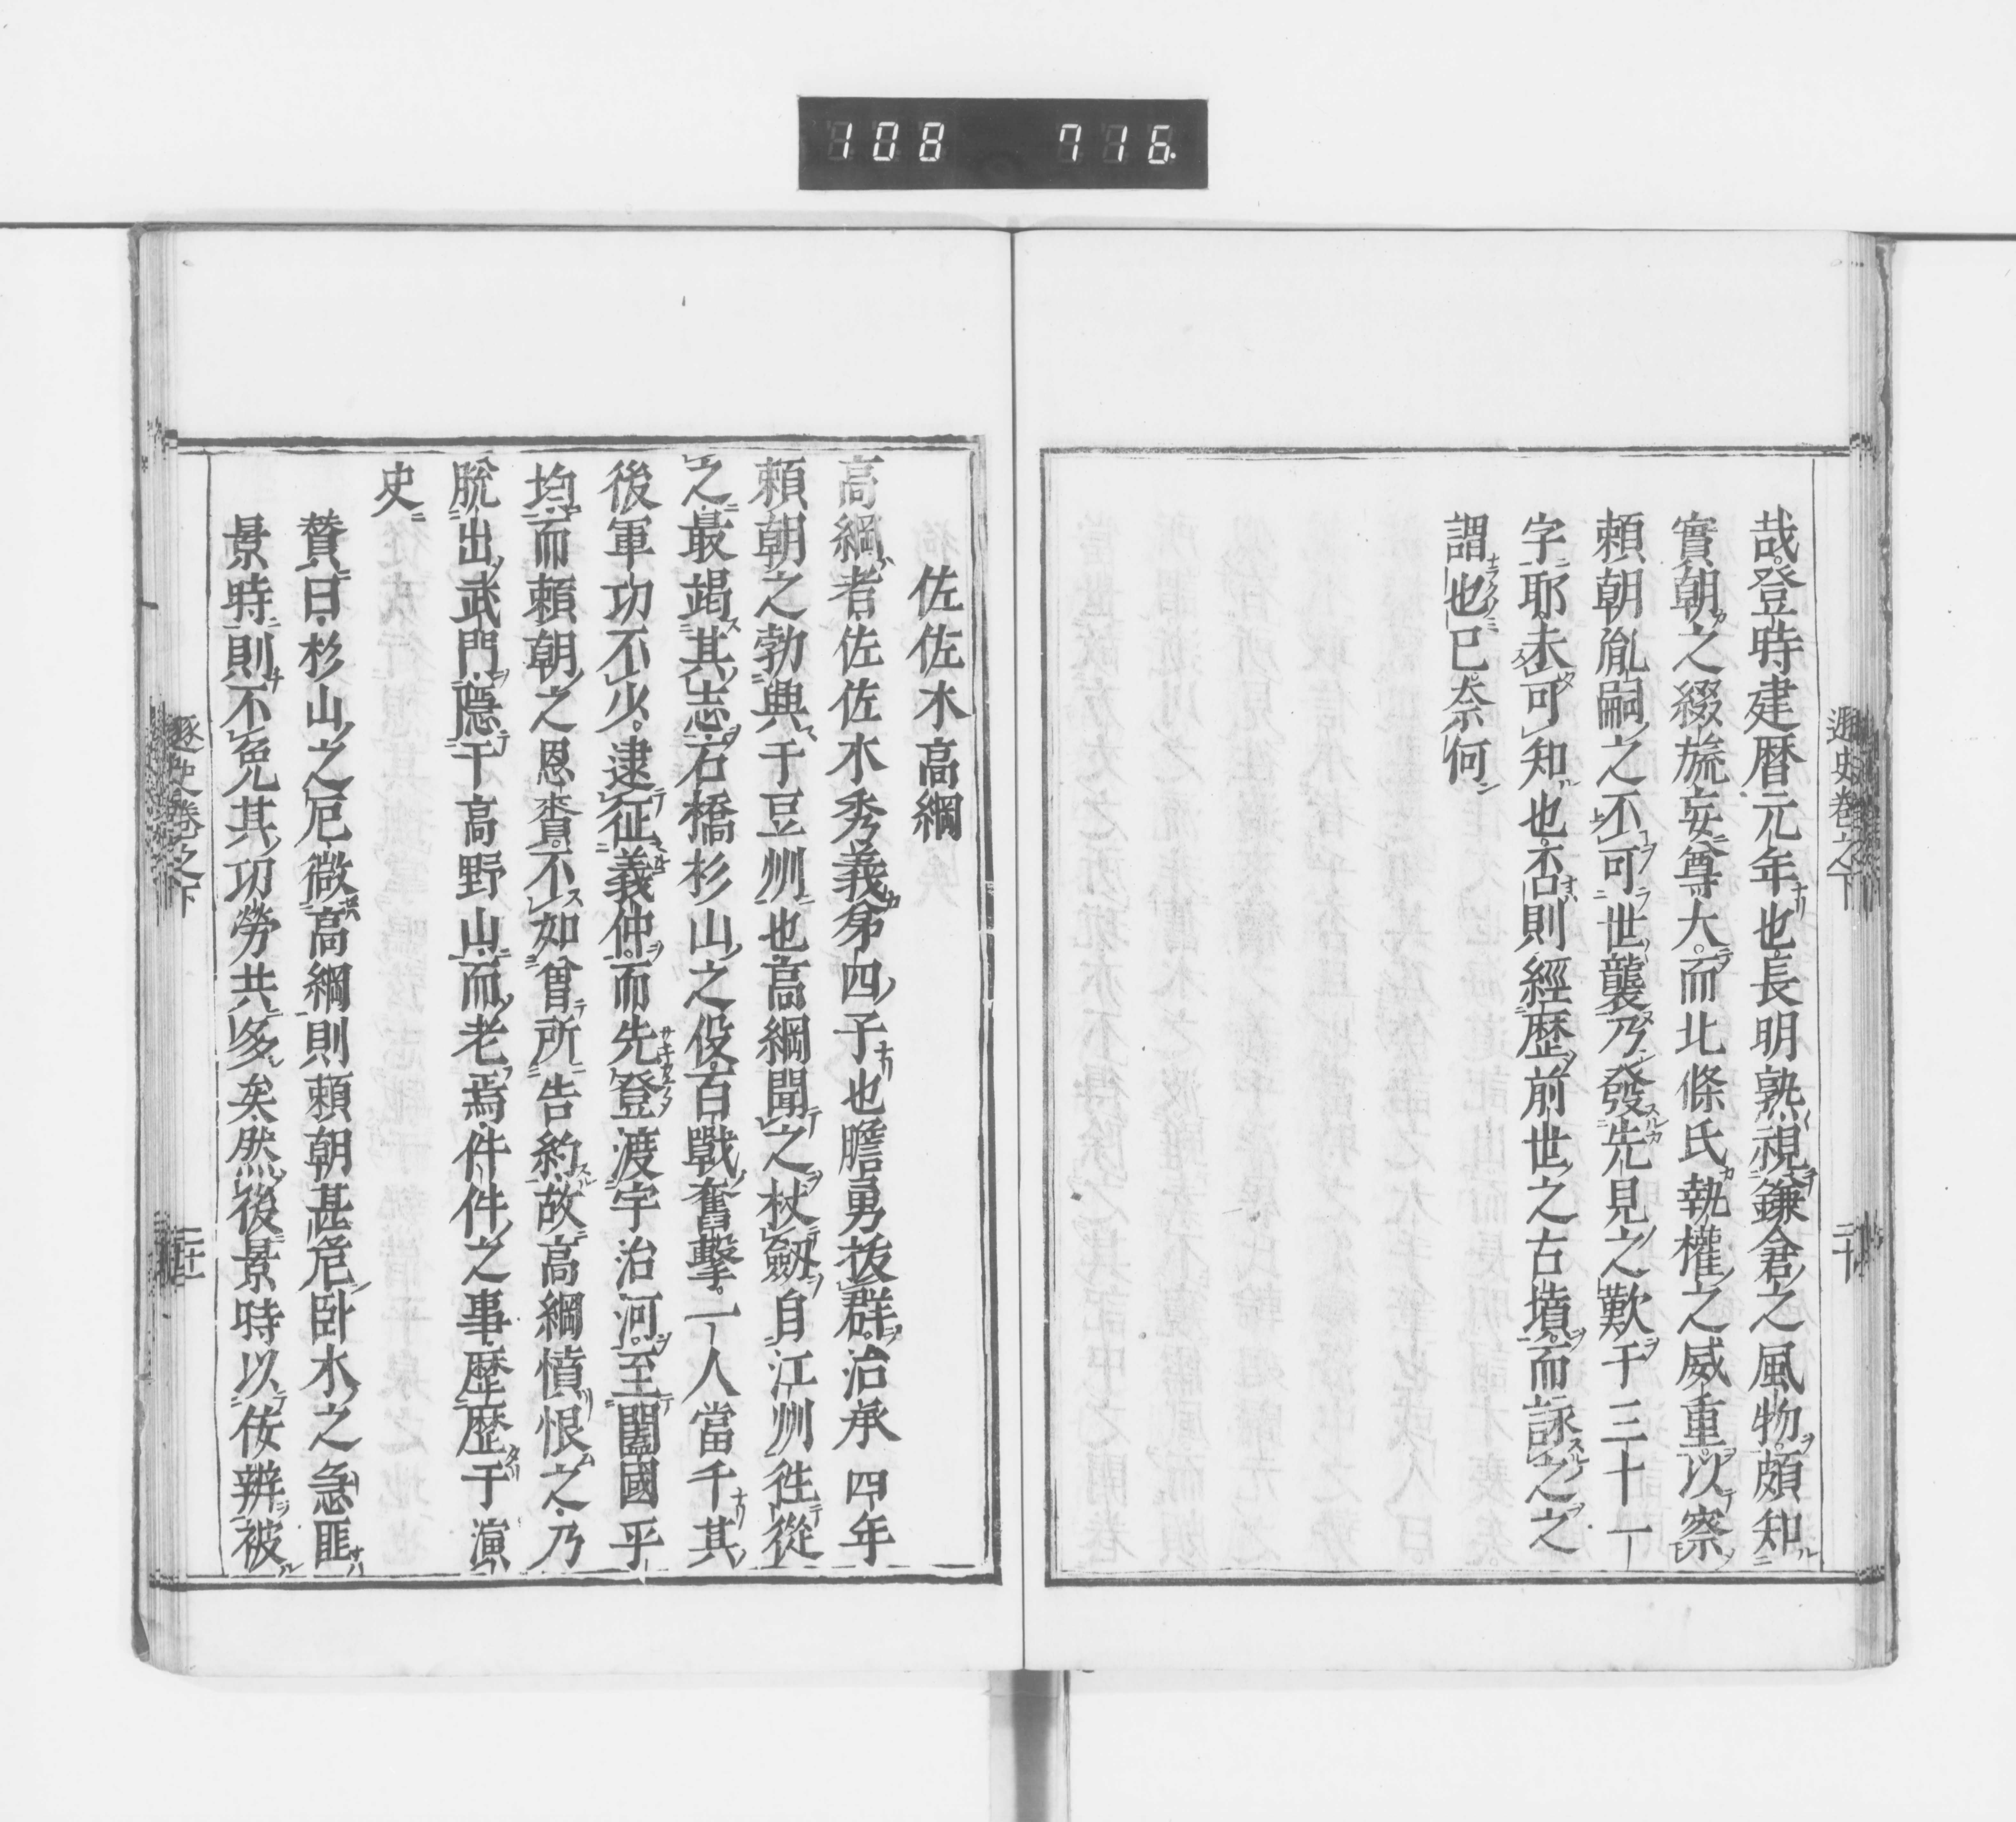 108 716.
遯史卷之下
二十
哉登時建暦元年也長明熟視鎌倉之風物頗知
實朝之綴旒妄尊大而北條氏執權之威重以察
賴朝胤嗣之不可世襲乃發先見之歎于三十一
字耶未可知也否則經歴前世之古墳而詠之之
謂也已奈何
佐佐木高綱
高綱者佐佐木秀義第四子也膽勇拔群治承四年
賴朝之勃興于豆州也高綱聞之杖劔自江州徃從
之最竭其志石橋杉山之役百戰奮擊一人當千其
後軍功不少逮征義仲而先登渡宇治河至闔國乎
均而賴朝之恩賚不如曾所告約故高綱憤恨之乃
脫出武門隱于高野山而老焉件件之事歷歷于演
史
賛曰杉山之厄微高綱則賴朝甚危卧木之急匪
景時則不免其功勞共多矣然後景時以侫辨被
遯史卷之下
二十一